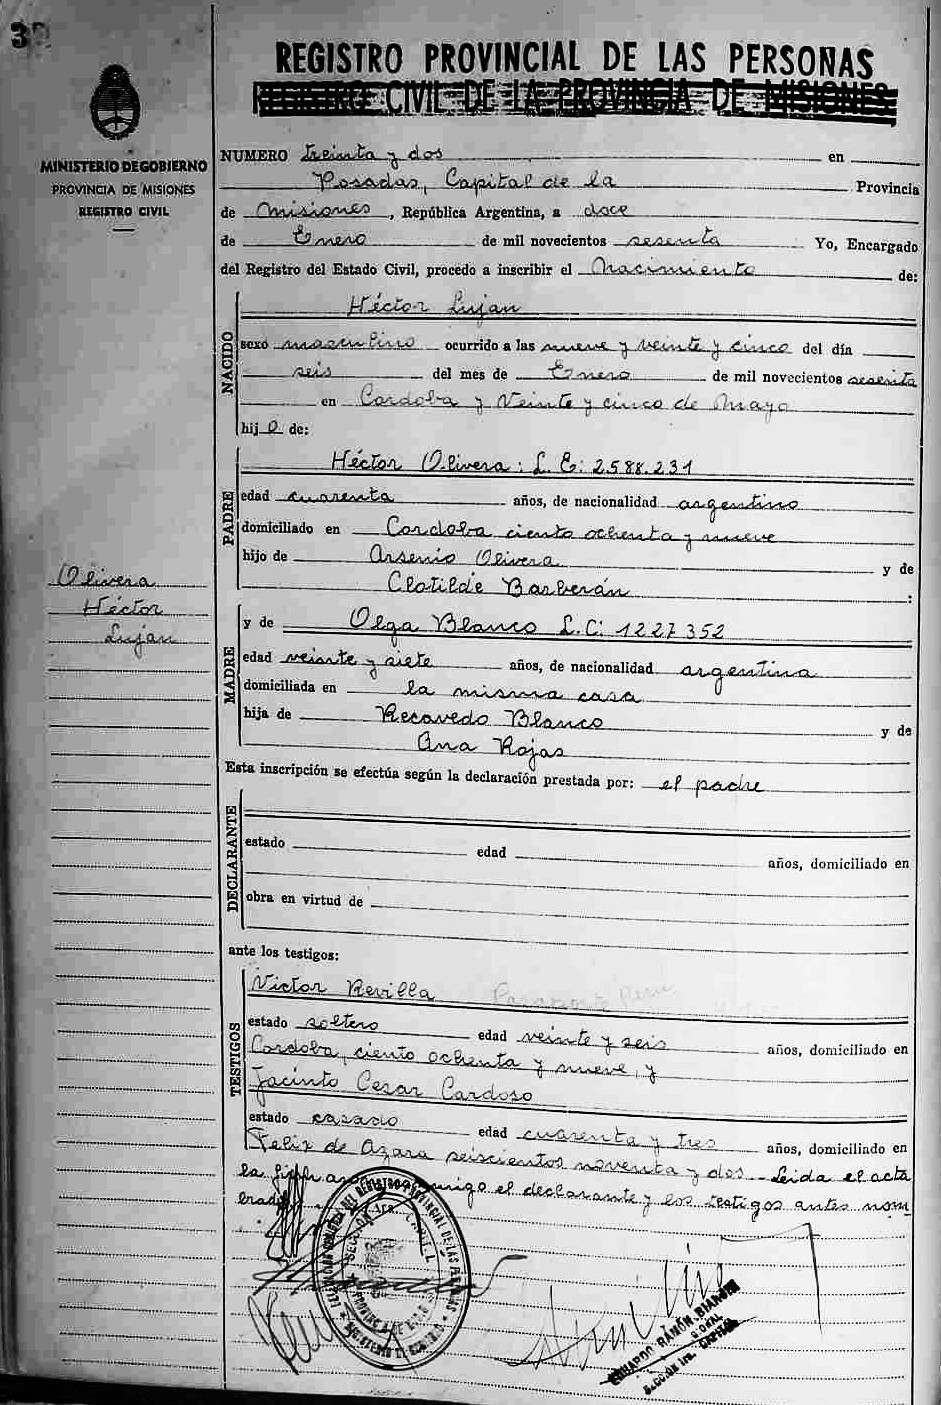 REGISTRO PROVINCIAL DE LAS PERSONAS
REGISTRO CIVIL DE LA PROVINCIA DE MISIONES
MINISTERIO DE GOBIERNO
PROVINCIA DE MISIONES
REGISTRO CIVIL
NUMERO treinta y dos en
Posadas, Capital de la Provincia
de Misiones, República Argentina, a doce
de Enero de mil novecientos sesenta Yo, Encargado
del Registro del Estado Civil, procedo a inscribir el Nacimiento de:
NACIDO
Héctor Lujan
sexo masculino ocurrido a las nueve y veinte y cinco del día
seis del mes de Enero de mil novecientos sesenta
en Cordoba y Veinte y cinco de Mayo
hijo de:
PADRE
Héctor Olivera: L. E: 2.588.231
edad cuarenta años, de nacionalidad argentino
domiciliado en Cordoba ciento ochenta y nueve
hijo de Arsenio Olivera y de
Clotilde Barberán :
Olivera
Héctor
Lujan
MADRE
y de Olga Blanco L.C: 1227352
edad veinte y siete años, de nacionalidad argentina
domiciliada en la misma casa
hija de Recavedo Blanco y de
Ana Rojas
Esta inscripción se efectúa según la declaración prestada por: el padre
DECLARANTE
estado edad años, domiciliado en
obra en virtud de
ante los testigos:
TESTIGOS
Victor Revilla Pasaporte Peru
estado soltero edad veinte y seis años, domiciliado en
Cordoba, ciento ochenta y nueve, y
Jacinto Cesar Cardoso
estado casado edad cuarenta y tres años, domiciliado en
Felix de Azara seiscientos noventa y dos - Leida el acta
la el declarante y los testigos antes nom
brados
EDUARDO RAMÓN
SECCIÓN 1ra. CAPITAL